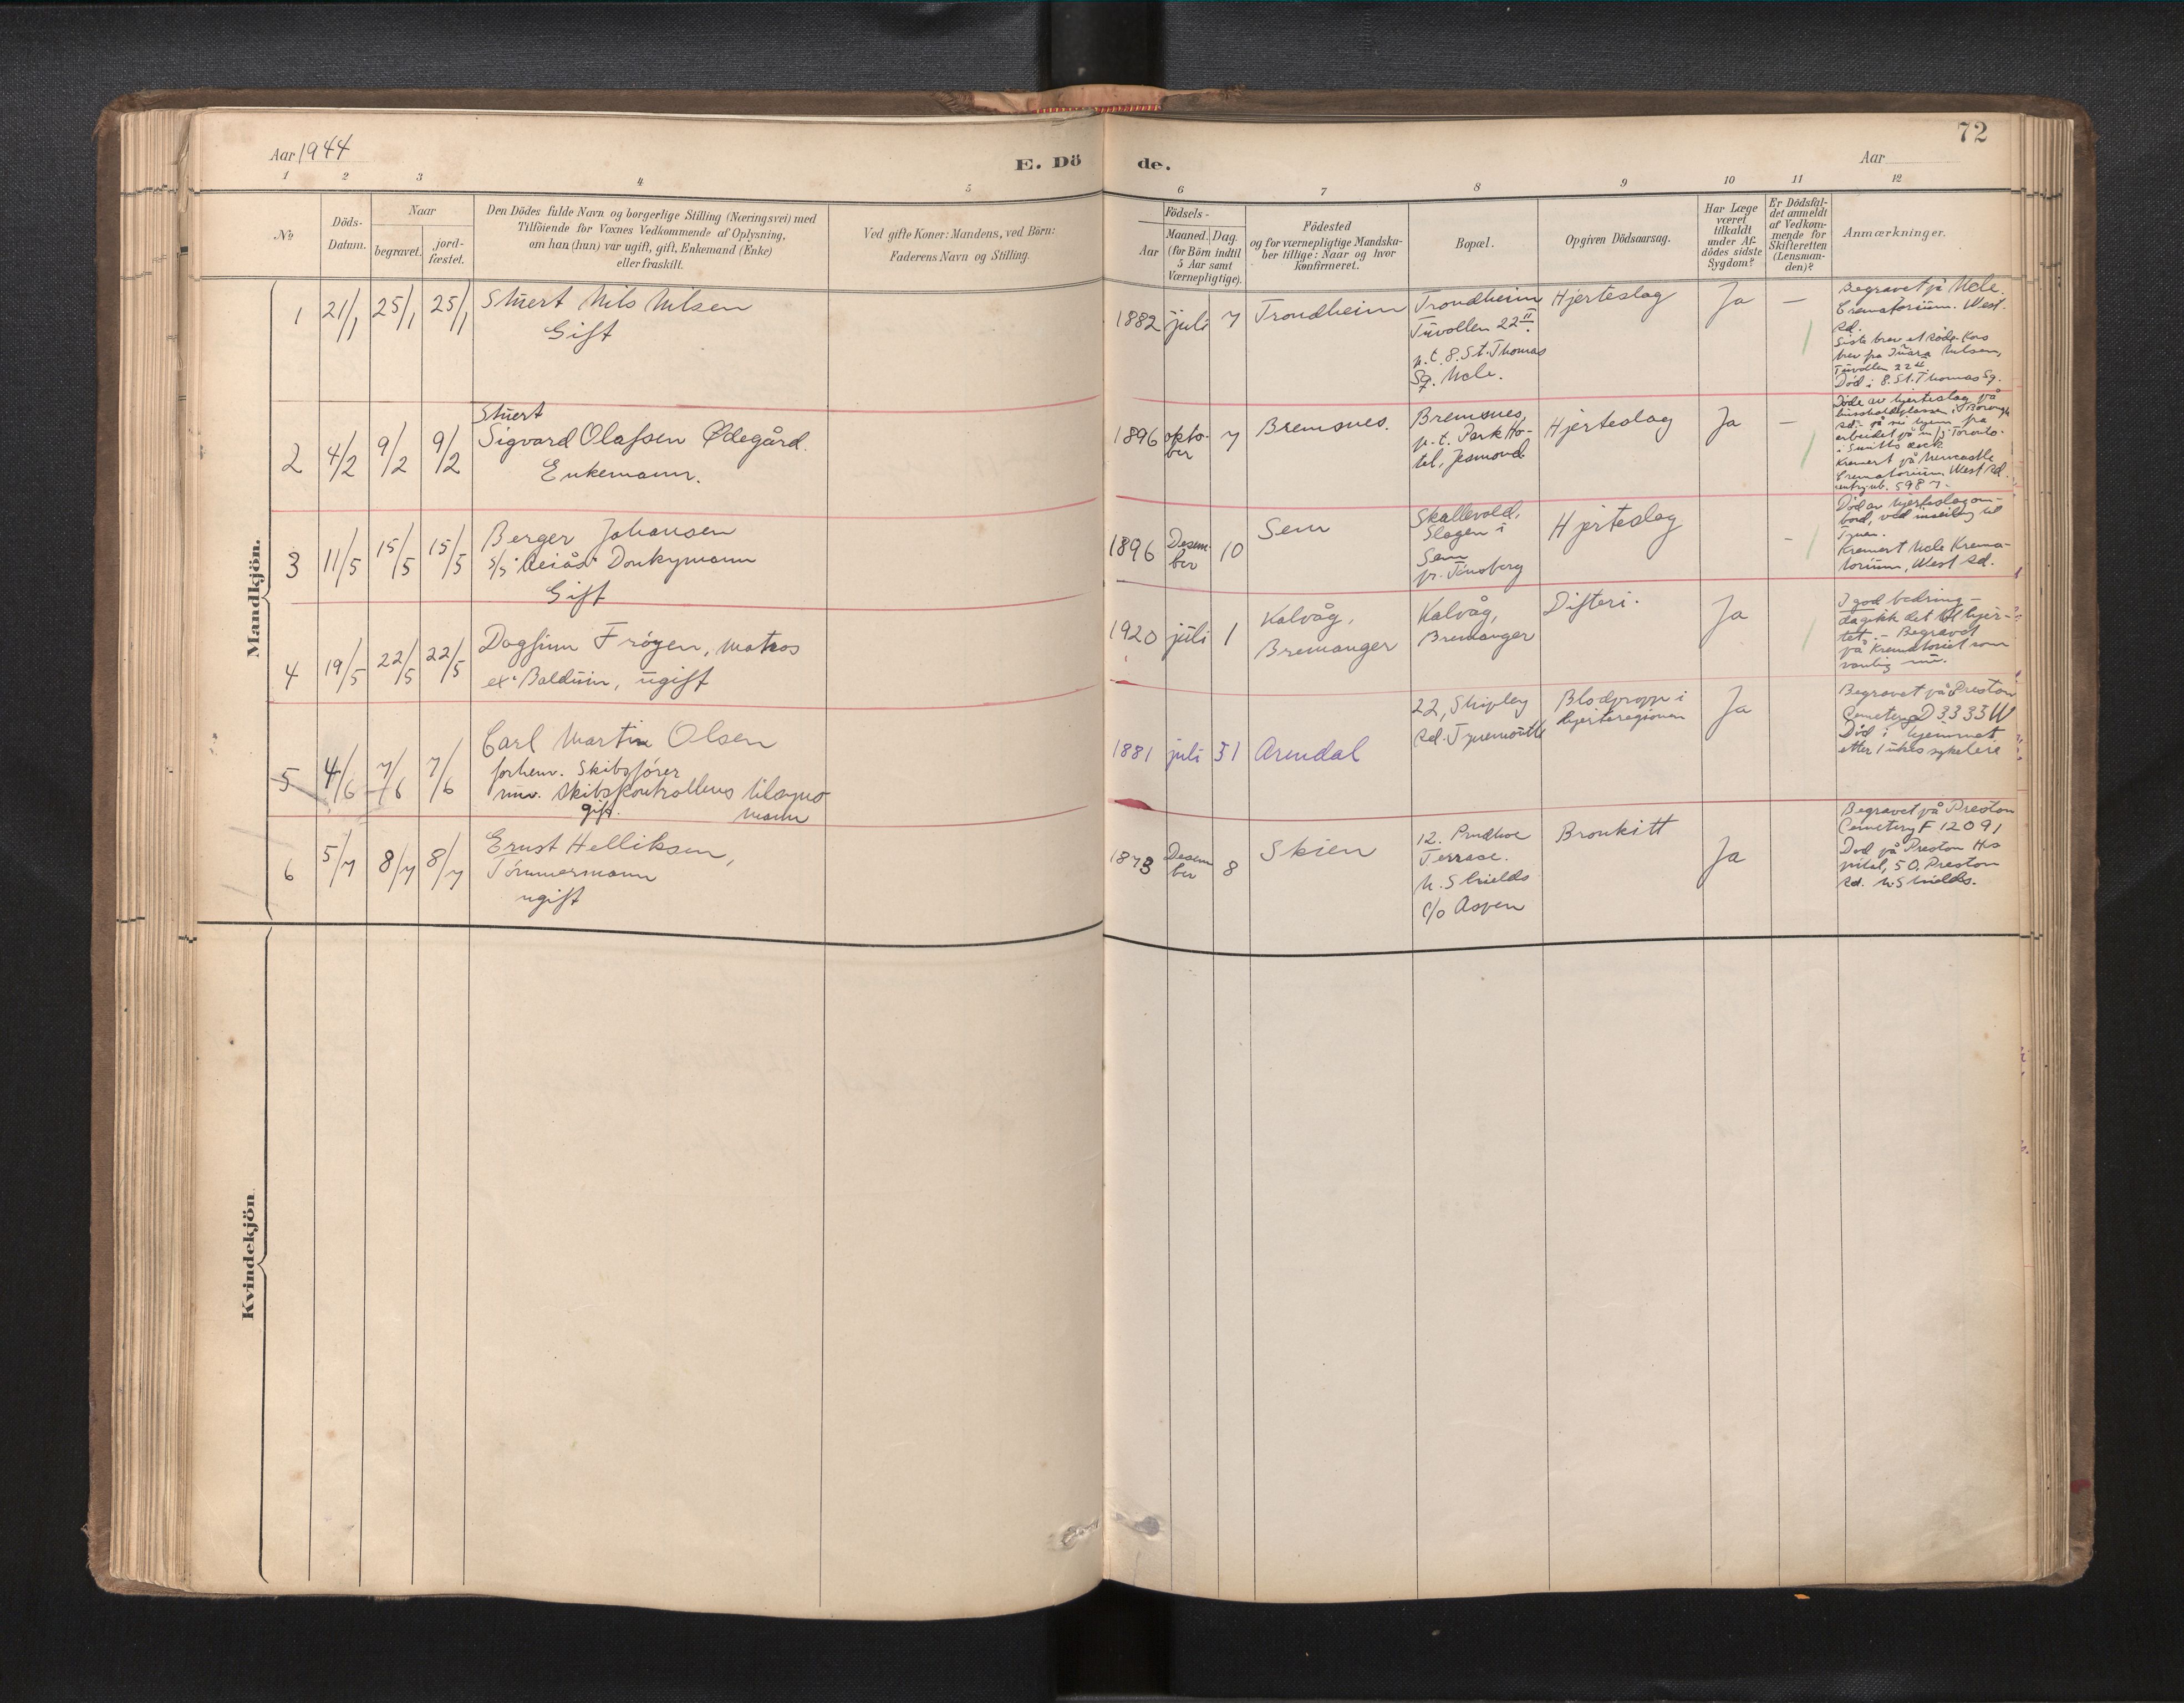 72
Aar 1944
E. Dö de.
Aar
1 2 3 4 5 6 7 8 9 10 11 12
No
Döds-
Datum.
Naar
begravet.
jord-
fæstet.
Den Dödes fulde Navn og borgerlige Stilling (Næringsvei) med
Tilföiende for Voxnes Vedkommende af Oplysning,
om han (hun) var ugift, gift, Enkemand (Enke)
eller fraskilt.
Ved gifte Koner: Mandens, ved Börn:
Faderens Navn og Stilling.
Födsels-
Aar
Maaned. Dag.
(for Börn indtil
5 Aar samt
Værnepligtige).
Födested
og for værnepligtige Mandska-
ber tillige: Naar og hvor
konfirmeret.
Bopæl.
Opgiven Dödsaarsag.
Har Læge
været
tilkaldt
under Af-
dödes sidste
Sygdom?
Er Dödsfal-
det anmeldt
af Vedkom-
mende for
Skifteretten
(Lensman-
den)?
Anmærkninger.
Mandkjön.
1 21/1 25/1 25/1
Stuert Nils Nilsen
Gift
1882 juli 7 Trondheim
Trondheim
Tuvollen 22 II.
p.t. 8. St. Thomas
Sq. Ncle.
Hjerteslag
Ja
—
Begravet på Ncle.
Crematorium. West.
Rd.
Siste brev et Röde-Kors
brev fra Nilsen,
Tuvollen 22
Död i 8. St. Thomas Sq.
2 4/2 9/2 9/2
Stuert
Sigvard Olafsen Ødegård.
Enkemann.
1896 okto-
ber 7 Bremsnes.
Bremsnes,
p.t. Park Ho-
tel, Jesmond
Hjerteslag
Ja
—
Döde av hjerteslag på
bussholdeplassen i Borough
Rd. på vei hjem fra
arbeidet på m/s Toronto
i Smiths dock
Kremert på Newcastle
Crematorium, West Rd.
entry nb. 5987-
3 11/5 15/5 15/5
Berger Johansen
s/s "Reiås" Donkymann
Gift
1896 Desem-
ber 10 Sem
Skallevold,
Slagen i
Sem
pr. Tönsberg
Hjerteslag
-
Död av hjerteslag om-
bord, ved innseiling til
Tynen.
Kremert Ncle Krema-
torium, West Rd.
4 19/5 22/5 22/5
Dagfinn Frøyen, matros
ex "Balduin, ugift
1920 juli 1
Kalvåg,
Bremanger
Kalvåg,
Bremanger
Difteri.
Ja
I god bedring -
da gikk det til hjer-
tet. - Begravet
på Krematoriet som
vanlig nu.
5 4/6 7/6 7/6
Carl Martin Olsen
forhenv. Skibsfører
nuv. Skibskontrollens tilsyns
gift. mann
1881 juli 31 Arendal
22, Shipley
Rd. Tynemouth
Blodpropp i
hjerteregionen
Ja
Begravet på Preston
Cemetery D 3333 W
Död i hjemmet
etter 1 ukes sykeleie
6 5/7 8/7 8/7
Ernst Helliksen,
Tömmermann
ugift
1873 Desem
ber 8 Skien
12. Prudhoe
Terrase.
N. Shields
c/o Aspen
Bronkitt
Ja
Begravet på Preston
Cemetery F 12091
Död på Preston Hos
pital, 50, Preston
Rd. N. Shields.
Kvindekjön.